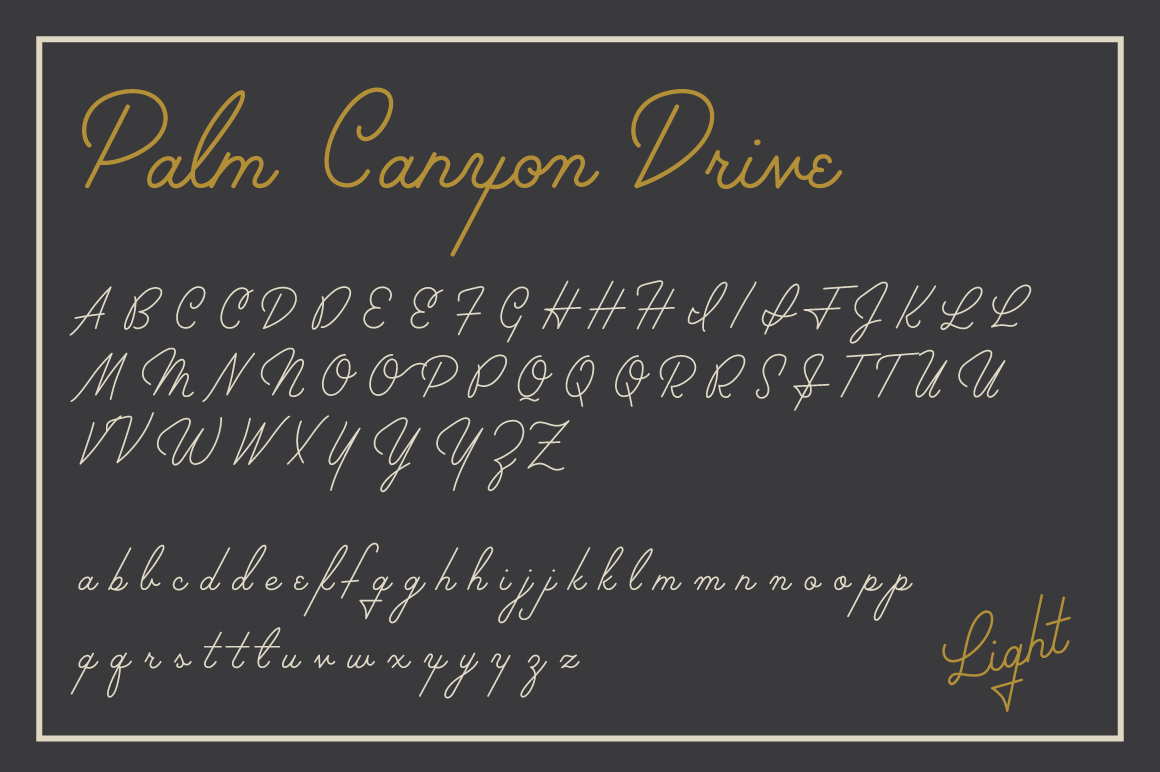 Palm Canyon Drive
A B C C D D E E F G H H H I I I F J K L L
M M N N O O P P Q Q Q R R S S T T U U
V V W W X Y Y Y Z Z
a b b c d d e e f f g g h h i j j k k l m m n n o o p p
q q r s t t t u v w x y y y z z
Light